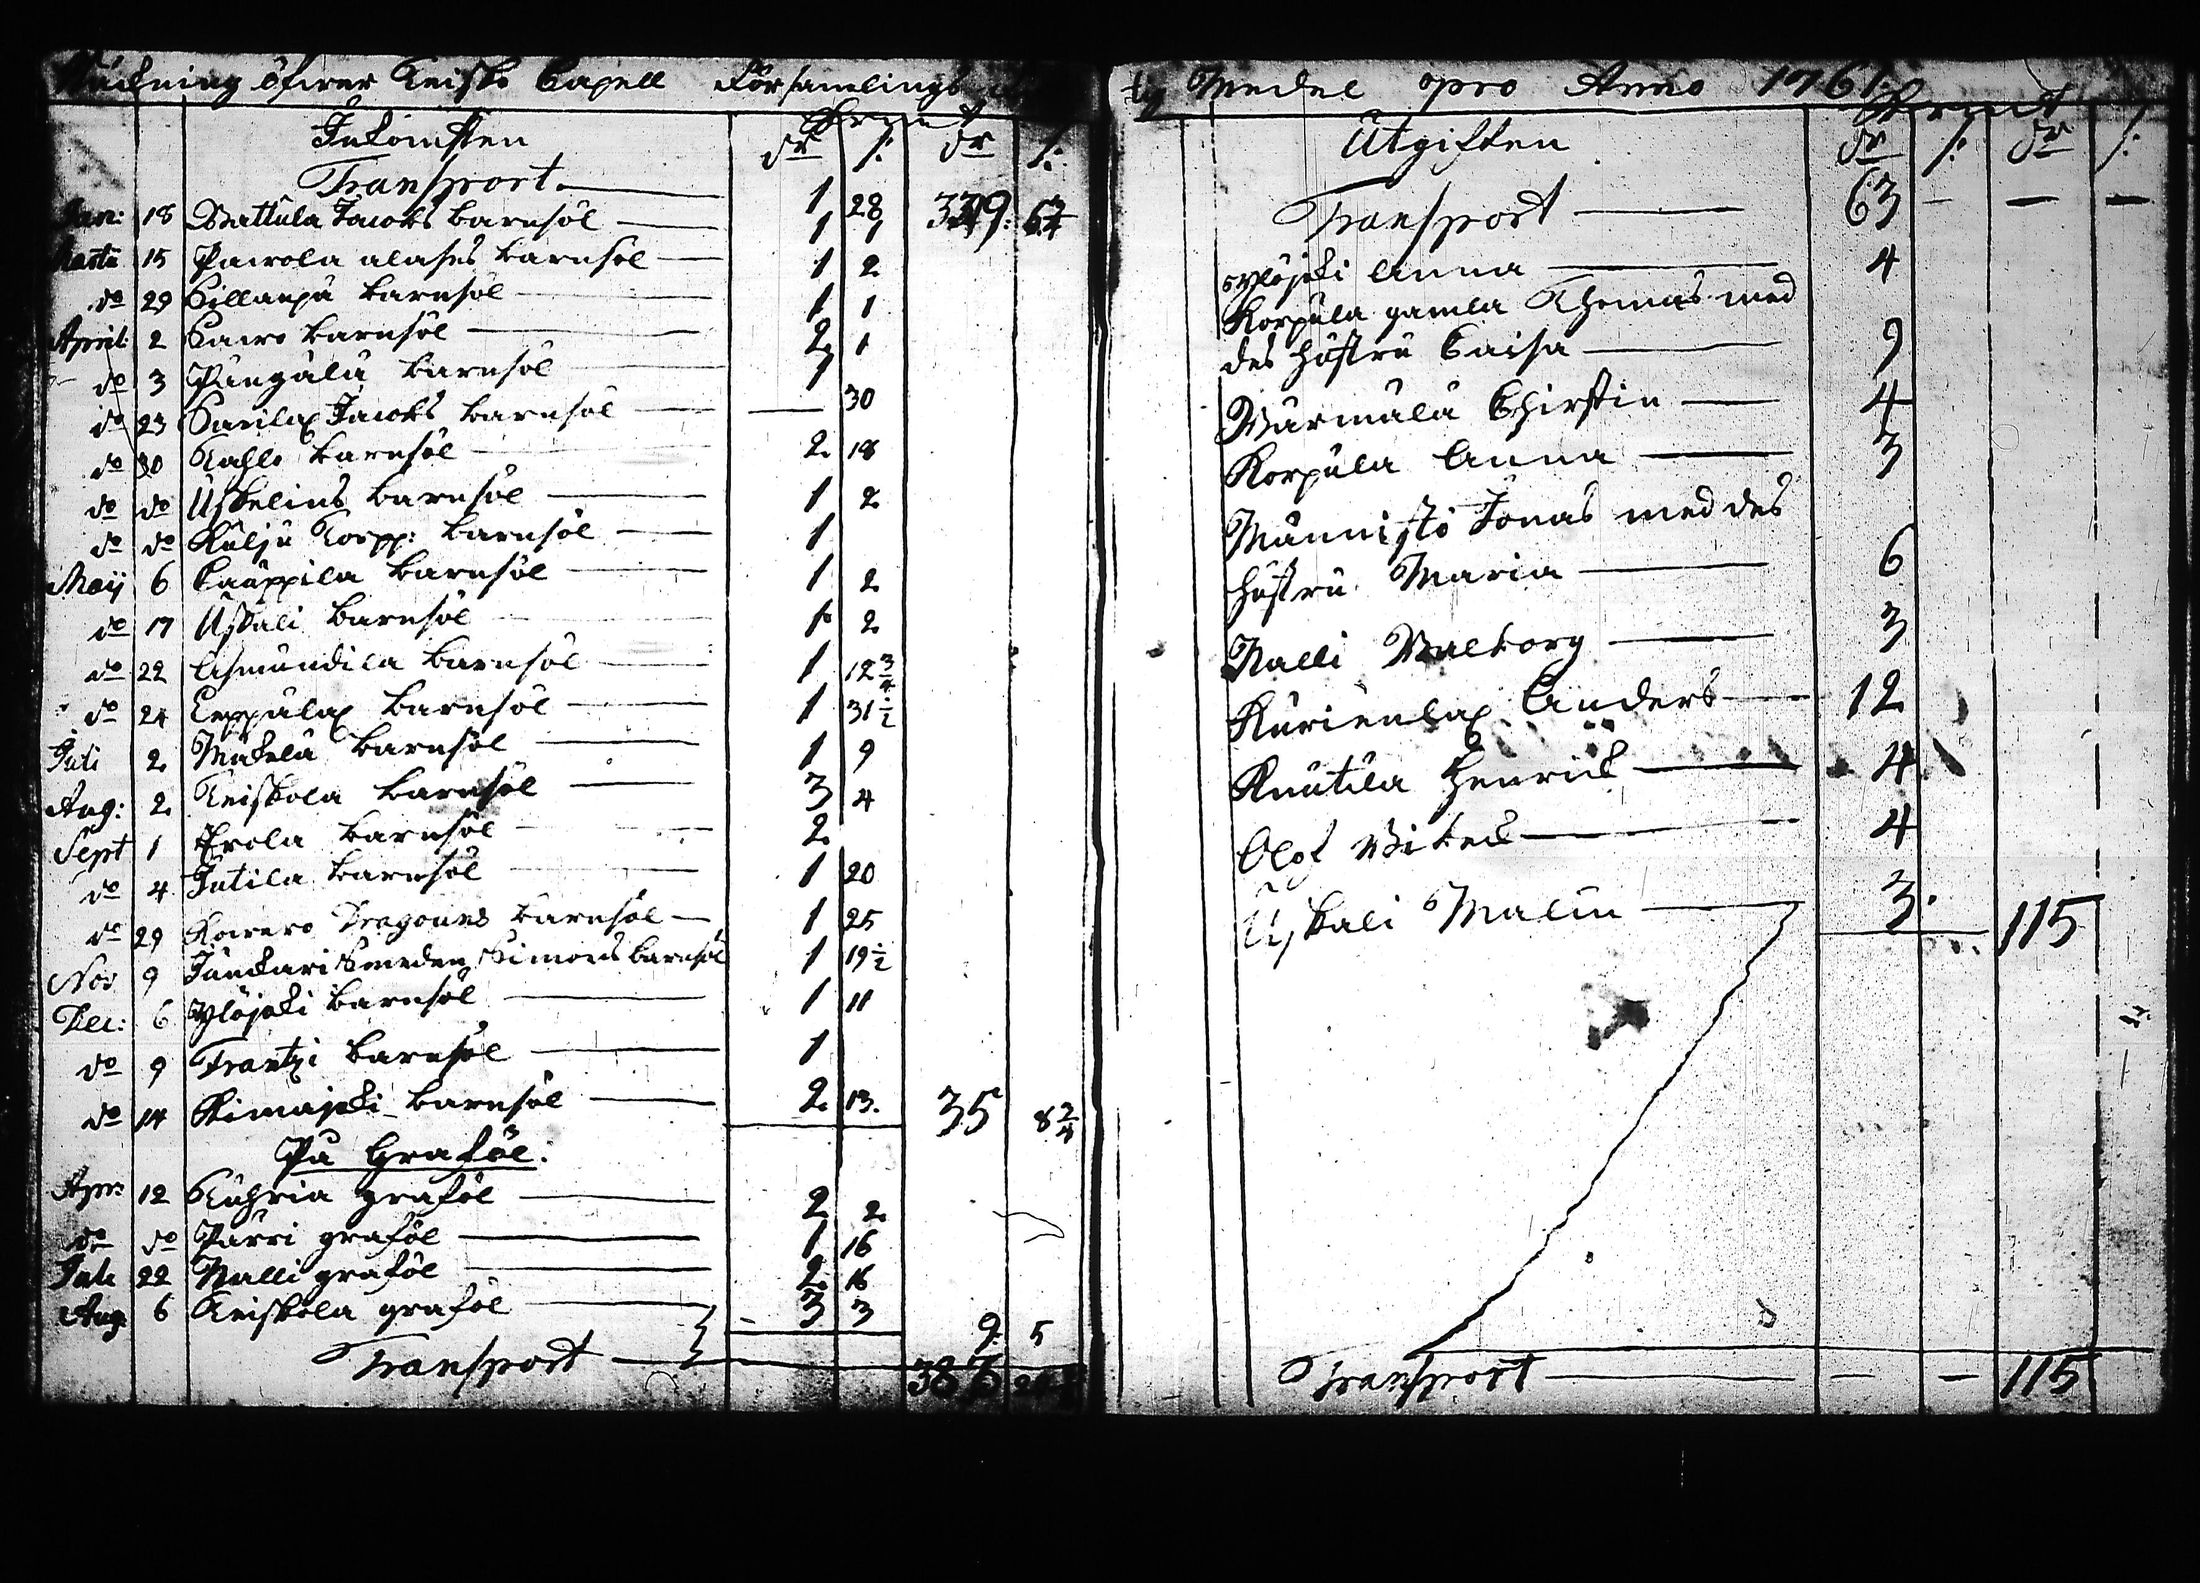 Räckning öfwer Keikko Capell Församlings
Inkomsten
dr /: dr /:
Transport 339: 6 3/4
Jan: 18 Wattula Jacobs barnsöl 1 28
Martii 15 Pawola alases barnsöl 1 1
do 29 Sillanpä barnsöl 1 2
April 2 Sawo barnsöl 1 1
do 3 Pungälä barnsöl 2 1
do 23 Sarilax Jacobs barnsöl 1
do 30 Kahlo barnsöl — 30
do do Uskelius barnsöl 2 18
do do Kulju Korpp: barnsöl 1 2
Maij 6 Cauppila barnsöl 1
do 17 Uskali barnsöl 1 2
do 22 Asmundila barnsöl 1 2
do 24 Leppälax barnsöl 1 12 3/4
Juli 2 Mäkelä barnsöl 1 31 1/2
Aug: 2 Keiskola barnsöl 1 9
Sept 1 Erola barnsöl 3 4
do 4 Jutila barnsöl 2
do 29 Kowero Dragouns barnsöl 1 20
Nov 9 Junckari Smeden Simons barnsöl 1 25
Dec: 6 Ylöjoki barnsöl 1 19 1/2
do 9 Frantzi barnsöl 1 11
do 14 Kimajoki barnsöl 1
2 13 35 8 3/4
På Grafööl:
Apr: 12 Kuhria graföl 2 2
do do Pärri graföl 1 16
Juli 22 Nalli graföl 2 16
Aug 6 Keiskola graföl 3 3
9: 5
Transport
Medel pro Anno 1761
Utgiften
dr /: dr /:
Transport 63 — — —
Ylöjoki Anna 4
Korpula gamla Thomas med
des hustru Caisa 9
Wärmälä Chirstin 4
Korpula Anna 3
Männistö Jonas med des
hustru Maria 6
Nalli Walborg 3
Kurienlax Anders 12
Knutila Henrick 4
Olof Witick 4
Uskali Malin 3. 115
Transport — — 115